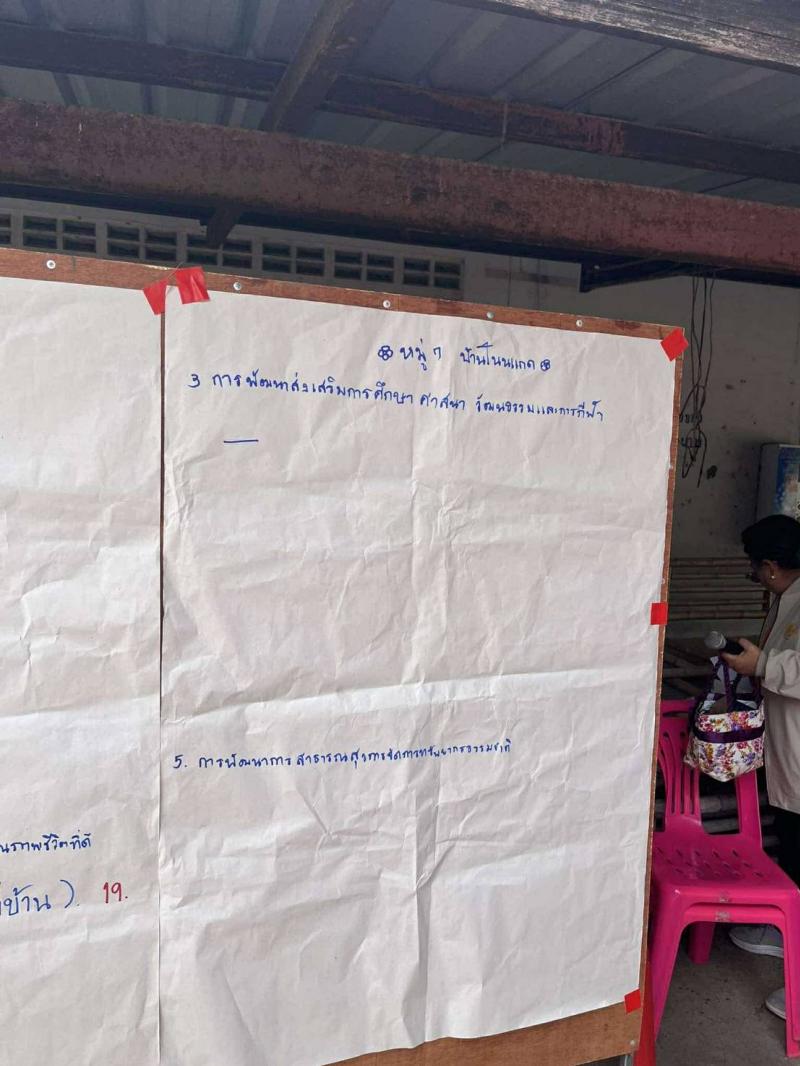 หมู่ 7 บ้านโนนแกด
3 การพัฒนาส่งเสริมการศึกษา ศาสนา วัฒนธรรมและการกีฬา
5. การพัฒนาการ สาธารณสุขการจัดการทรัพยากรธรรมชาติ
ณภาพชีวิตที่ดี
บ้าน). 19.